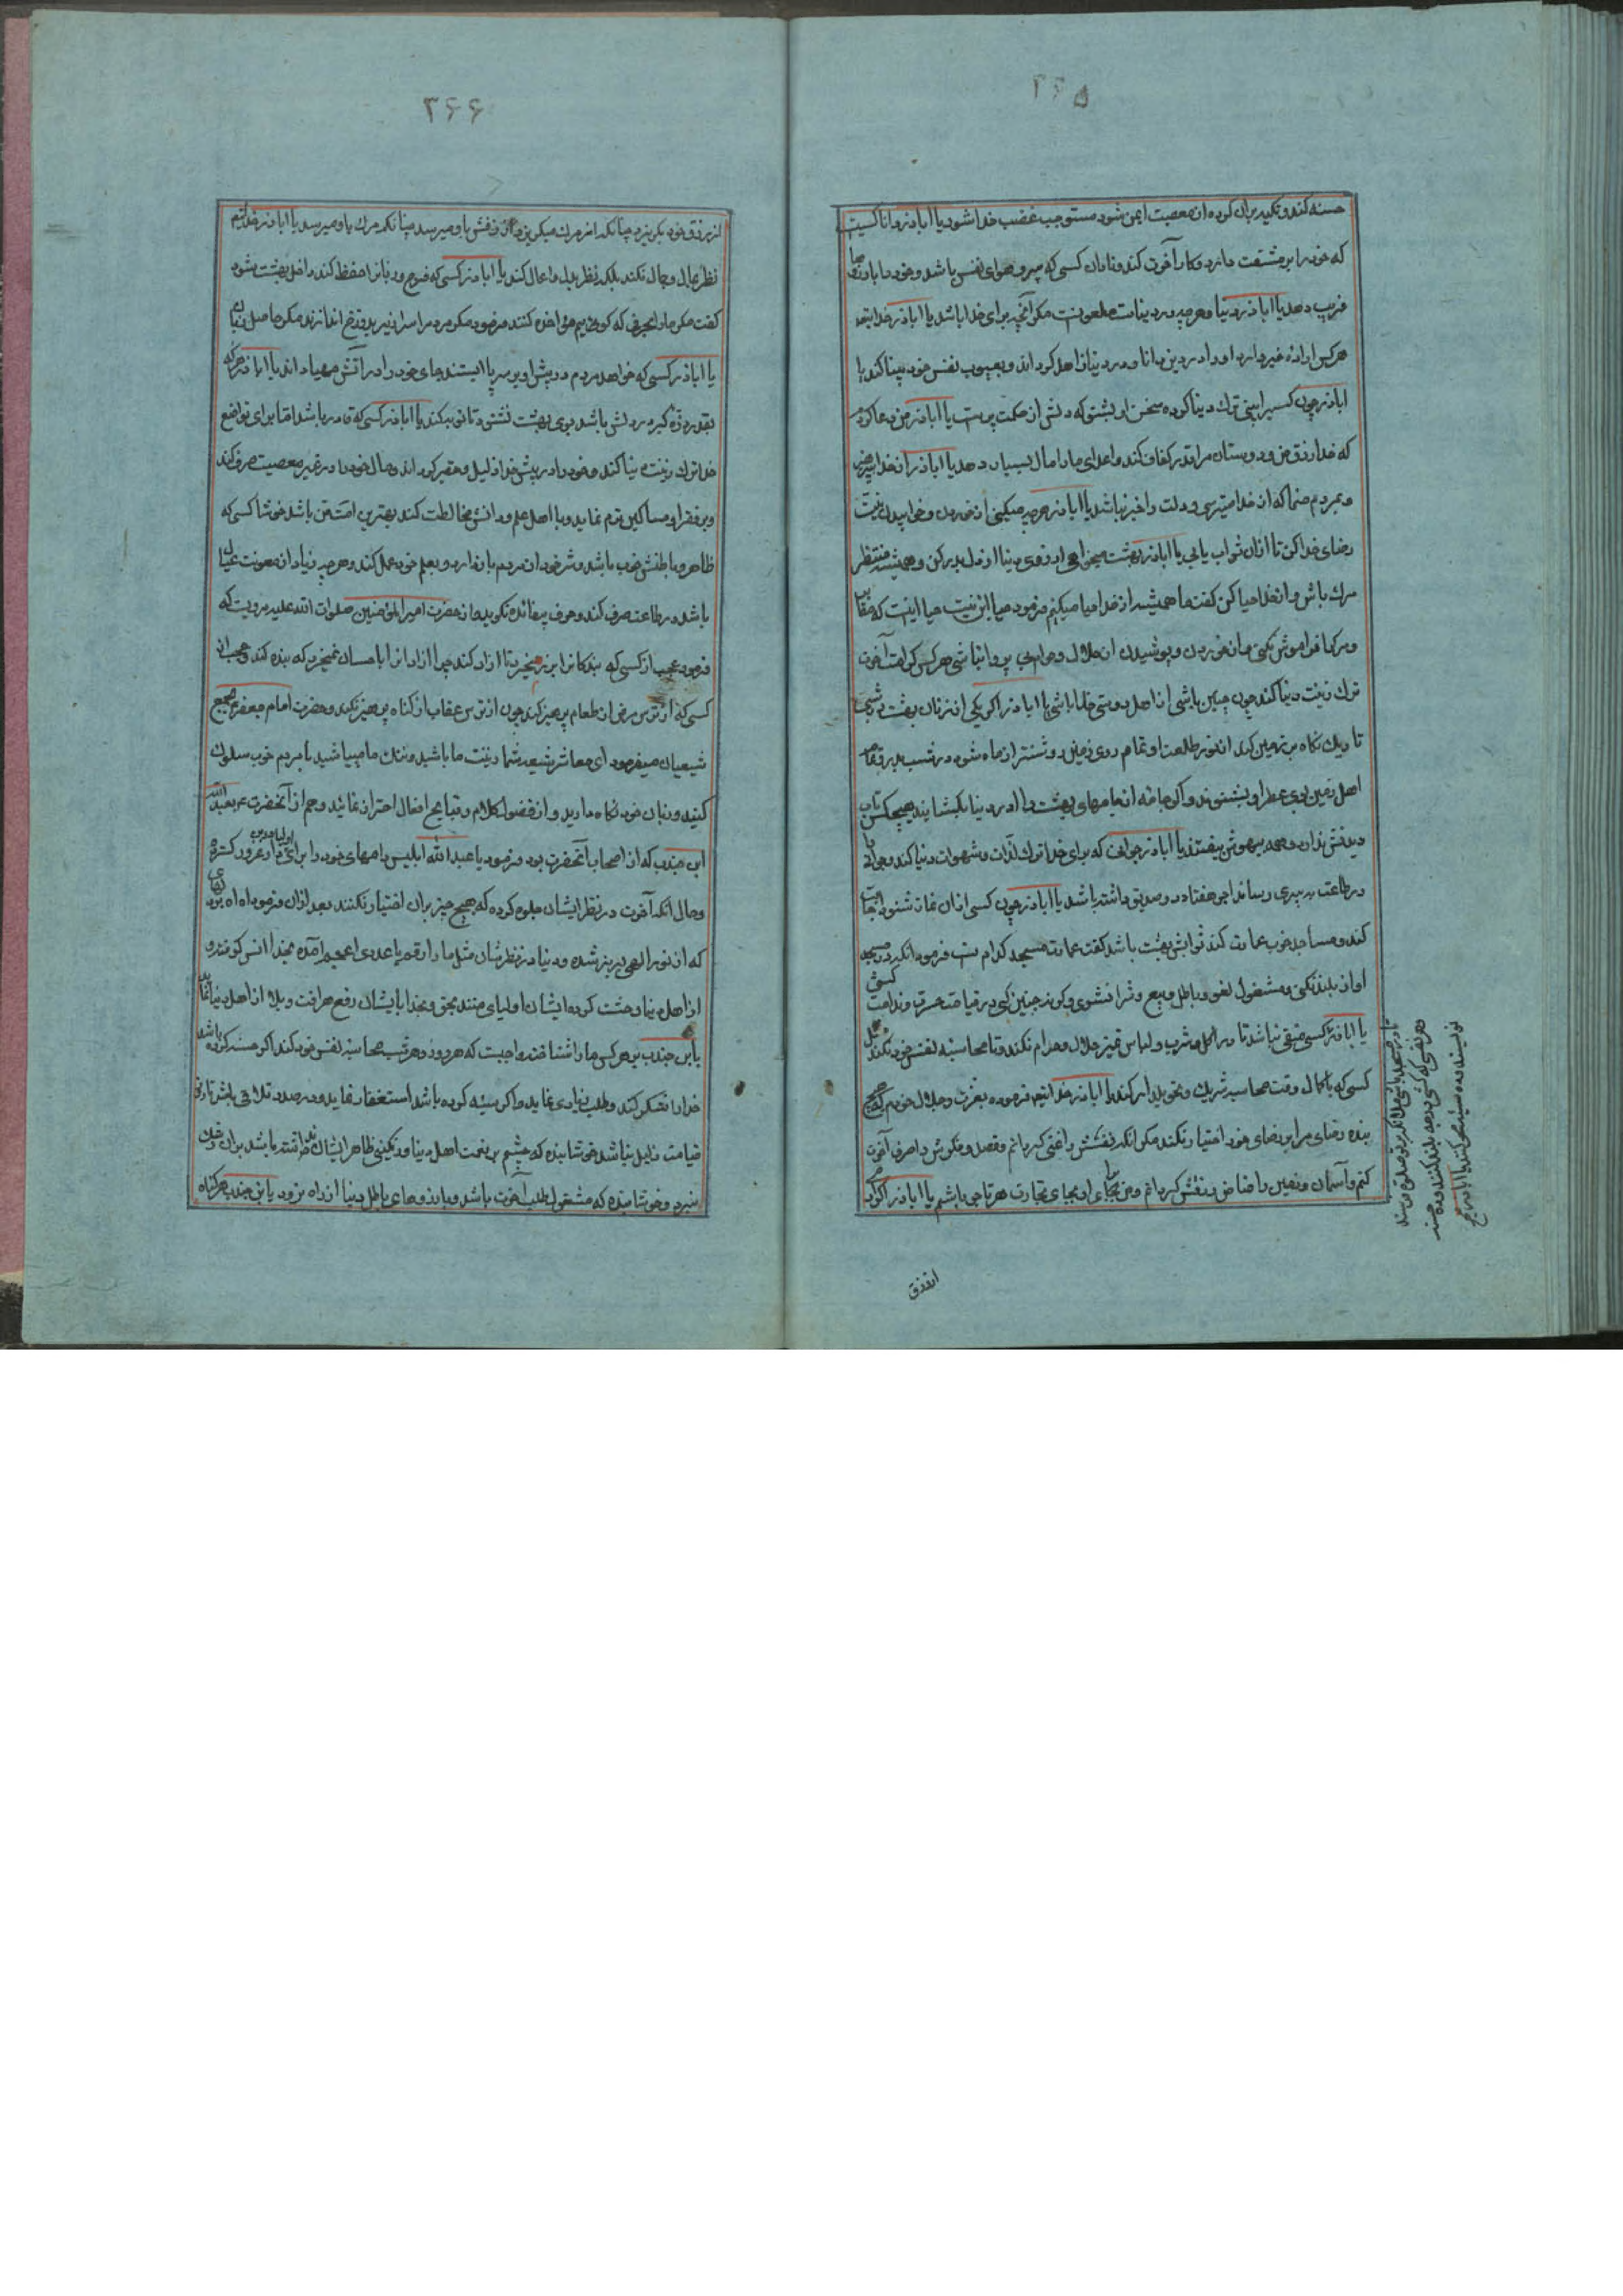 ۲۶۵
حسنه کند و تکیه بران کرده از معصیت ایمن شود مستوجب غضب خدا شود یا اباذر دانا کسیست
که خود را بر مشقت دارد و کار آخرت کند و نادان کسی که پیرو هوای نفس باشد و خود را با رزوها
فریب دهد یا اباذر دنیا و هرچه در دنیاست ملعونست مکر آنچه برای خدا باشد یا اباذر خدایتعا
هرکس اراده خیر دارد او را در دین دانا و در دنیا زاهد کرداند و بعیوب نفس خود بینا کند یا
اباذر چون کسیرا بینی ترك دنیا کرده سخن او بشنو که دلش از حکمت پرست یا اباذر من دعا کردم
که خدا رزق من و دوستان مرا قدر کفاف کند و اعدای ما را مال بسیار دهد یا اباذر از خدا بپرهیز
و بمردم منما که از خدا میترسی و دلت را خبر نباشد یا اباذر هرچه میکنی از خوردن و خوابیدن بنیت
رضای خدا کن تا ازان ثواب یابی یا اباذر بهشت میخواهی ارزوی دنیا از دل بدر کن و همیشه منتظر
مرك باش و از خدا حیا کن کفت ما همیشه از خدا حیا میکنیم فرمود حیا این نیست حیا اینست که مقابر
و مرکها فراموش نکنی و از خوردن و پوشیدن از حلال و حرام بی پروا نباشی هرکس کرامت آخرت
ترك زینت دنیا کند چون چنین باشی از اهل دوستی خدا باشی یا اباذر اکر یکی از زنان بهشت در شب
تاریك نکاه بر زمین کند از نور طلعت او تمام روی زمین روشنتر از ماه شود در شب بدر و تمام
اهل زمین بوی عطر او بشنوند و اکر جامه از جامهای بهشت را در دنیا بکشایند هیچکس تاب
دیدنش ندارد و همه بیهوش بیفتند یا اباذر جوانی که برای خدا ترك لذات و شهوات دنیا کند و جوانی را
در طاعت به پیری رساند اجر هفتاد و دو صدیق داشته باشد یا اباذر چون کسی اذان نماز شنود اجابت
کند و مساجد خوب عمارت کند ثوابش بهشت باشد کفت عمارت مسجد کدام است فرمود انکه در مسجد
اواز بلند نکنی و مشغول لغو و باطل و بیع و شرا نشوی و کرنه چنین کنی در قیامت حسرت و ندامت کشی
یا اباذر کسی متقی نباشد تا در اکل و شرب و لباس تمیز حلال و حرام نکند و تا محاسبه نفس خود نکند مثل
کسی که با کمال دقت محاسبه شریك و تحویلدار کند یا اباذر خدایتعا فرموده بعزت و جلال خودم که هیچ
بنده رضای مرا بر رضای خود اختیار نکند مکر انکه نفسش را غنی کردانم و قصد و فکرش را صرف آخرت
کنم و آسمان و زمین را ضامن رزقش کردانم و من بجای او بجای تجارت هر تاجری باشم یا اباذر اکر آدمی
تا در مسجد باشی ملائکه بر تو صلوة فرستند
و هر نفسی که کشی درجه بلند کنند و ده حسنه
نویسند و ده سیئه محو کنند یا اباذر هیچ
از رزق
۲۶۶
از رزق خود بکریزد چنانکه از مرك میکریزد آن رزقش باو میرسد چنانکه مرك باو میرسد یا اباذر خدایتعا
نظر بمال و جمال نکند بلکه نظر بدل و اعمال کند یا اباذر کسی که فرج و زبانرا حفظ کند داخل بهشت شود
کفت مکر ما را بحرفی که کوئیم مؤاخذه کنند فرمود مکر مردم را سرازیر بدوزخ اندازند مکر حاصل زبان
یا اباذر کسی که خواهد مردم در پیش او بر سر پا ایستند جای خود را در آتش مهیا داند یا اباذر هرکه
بقدر ذره کبر در دلش باشد بوی بهشت نشنود تا توبه کند یا اباذر کسی که قادر باشد اما برای تواضع
خدا ترك زینت دنیا کند و خود را در پیش خدا ذلیل و حقیر کرداند و مال خود را در غیر معصیت صرف کند
و بر فقرا و مساکین ترحم نماید و با اهل علم و دانش مخالطت کند بهترین امت من باشد خوشا کسی که
ظاهر و باطنش خوب باشد و شر خود از مردم باز دارد و بعلم خود عمل کند و هرچه زیاد از معونت عیال
باشد در طاعت صرف کند و حرف بیفائده نکوید و از حضرت امیرالمؤمنین صلوات الله علیه مرویست که
فرمود عجب از کسی که بندکانرا بزر میخرد تا ازاد کند چرا ازادانرا باحسان نمیخرد که بنده کند و عجب از
کسی که از ترس مرض از طعام پرهیز کند چون از ترس عقاب از کناه پرهیز نکند و حضرت امام جعفر
شیعیان میفرمود ای معاشر شیعه شما زینت ما باشید و ننك ما مباشید با مردم خوب سلوك
کنید و زبان خود نکاه دارید و از فضول کلام و قبایح افعال احتراز نمائید و هم از آنحضرت بعبدالله
ابن جندب که از اصحاب آنحضرت بود فرمود یا عبدالله ابلیس دامهای خود را برای اولیا در دار غرور کسترده
و حال انکه آخرت در نظر ایشان جلوه کرده که هیچ چیز بران اختیار نکنند بعد ازان فرمود اه اه بر دلهای
که از نور الهی لبریز شده و دنیا در نظرشان مثل مار ارقم یا عدوی اعجم آمده بخدا انس کرفته و
از اهل دنیا وحشت کرده ایشان اولیای منند بحق و بخدا بایشان رفع هر آفت و بلا از اهل دنیا نماید
یا ابن جندب بر هرکس ما را شناخته واجبست که هر روز و هر شب محاسبه نفس خود کند اکر حسنه کرده باشد
خدا را شکر کند و طلب زیادی نماید و اکر سیئه کرده باشد استغفار نماید و در صدد تلافی باشد تا روز
قیامت ذلیل نباشد خوشا بنده که چشم بر نعمت اهل دنیا و رنکینی ظاهر ایشان نینداخته باشد بران رشك
نبرد و خوشا بنده که مشغول طلب آخرت باشد و بارزوهای باطل دنیا از راه نرود یا ابن جندب هر کناه